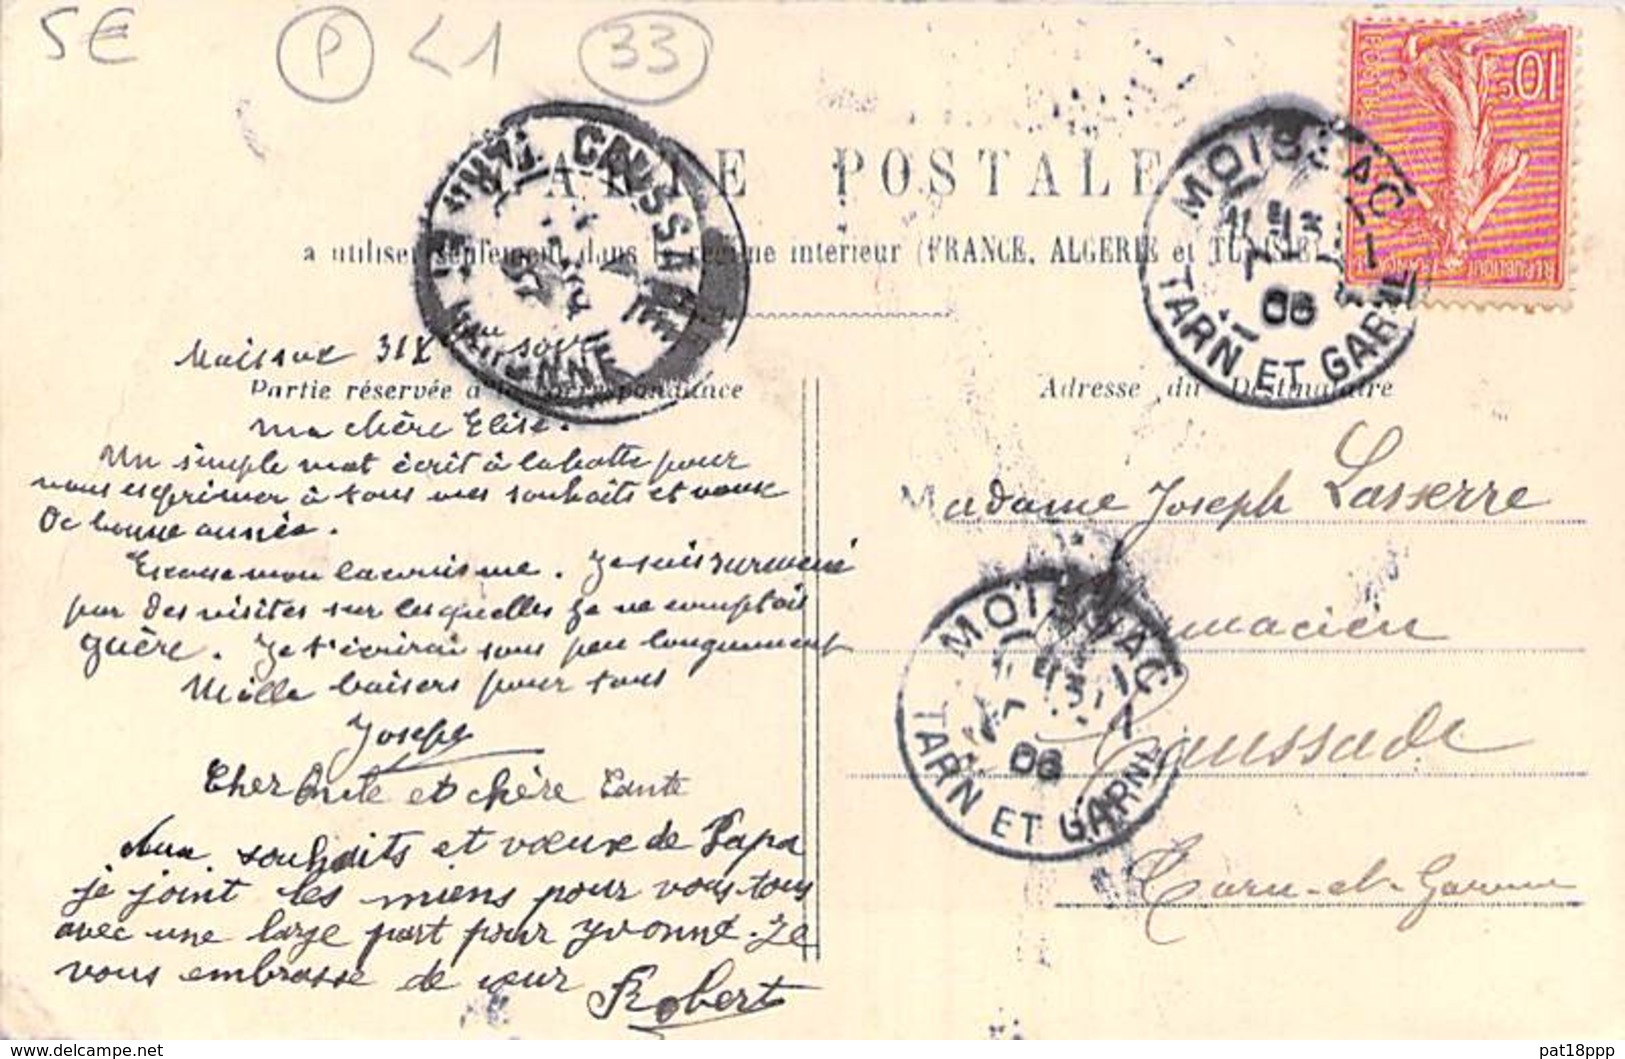 5€ P <1 33
10c
POSTES
REPUBLIQUE FRANÇAISE
CARTE POSTALE
a utiliser seulement dans le régime intérieur (FRANCE, ALGERIE et TUNISIE)
CAUSSADE
TARN ET GARONNE
MOISSAC
TARN ET GARNE
06
Moissac 31 X au soir
Partie réservée à la correspondance
Adresse du Destinataire
Ma chère Elise.
Un simple mot écrit à la hatte pour
vous exprimer à tous mes souhaits et voeux
de bonne année.
Excuse mon laconisme. Je suis surmené
par des visites sur lesquelles je ne comptais
guère. Je t'écrirai sous peu longuement
Mille baisers pour tous
Joseph
Cher Oncle et chère Tante
Aux souhaits et voeux de Papa
je joint les miens pour vous tous
avec une large part pour Yvonne. Je
vous embrasse de coeur
Robert
Madame Joseph Lasserre
Pharmacien
Caussade
Tarn-et-Garonne
MOISSAC
TARN ET GARNE
06
pat18ppp